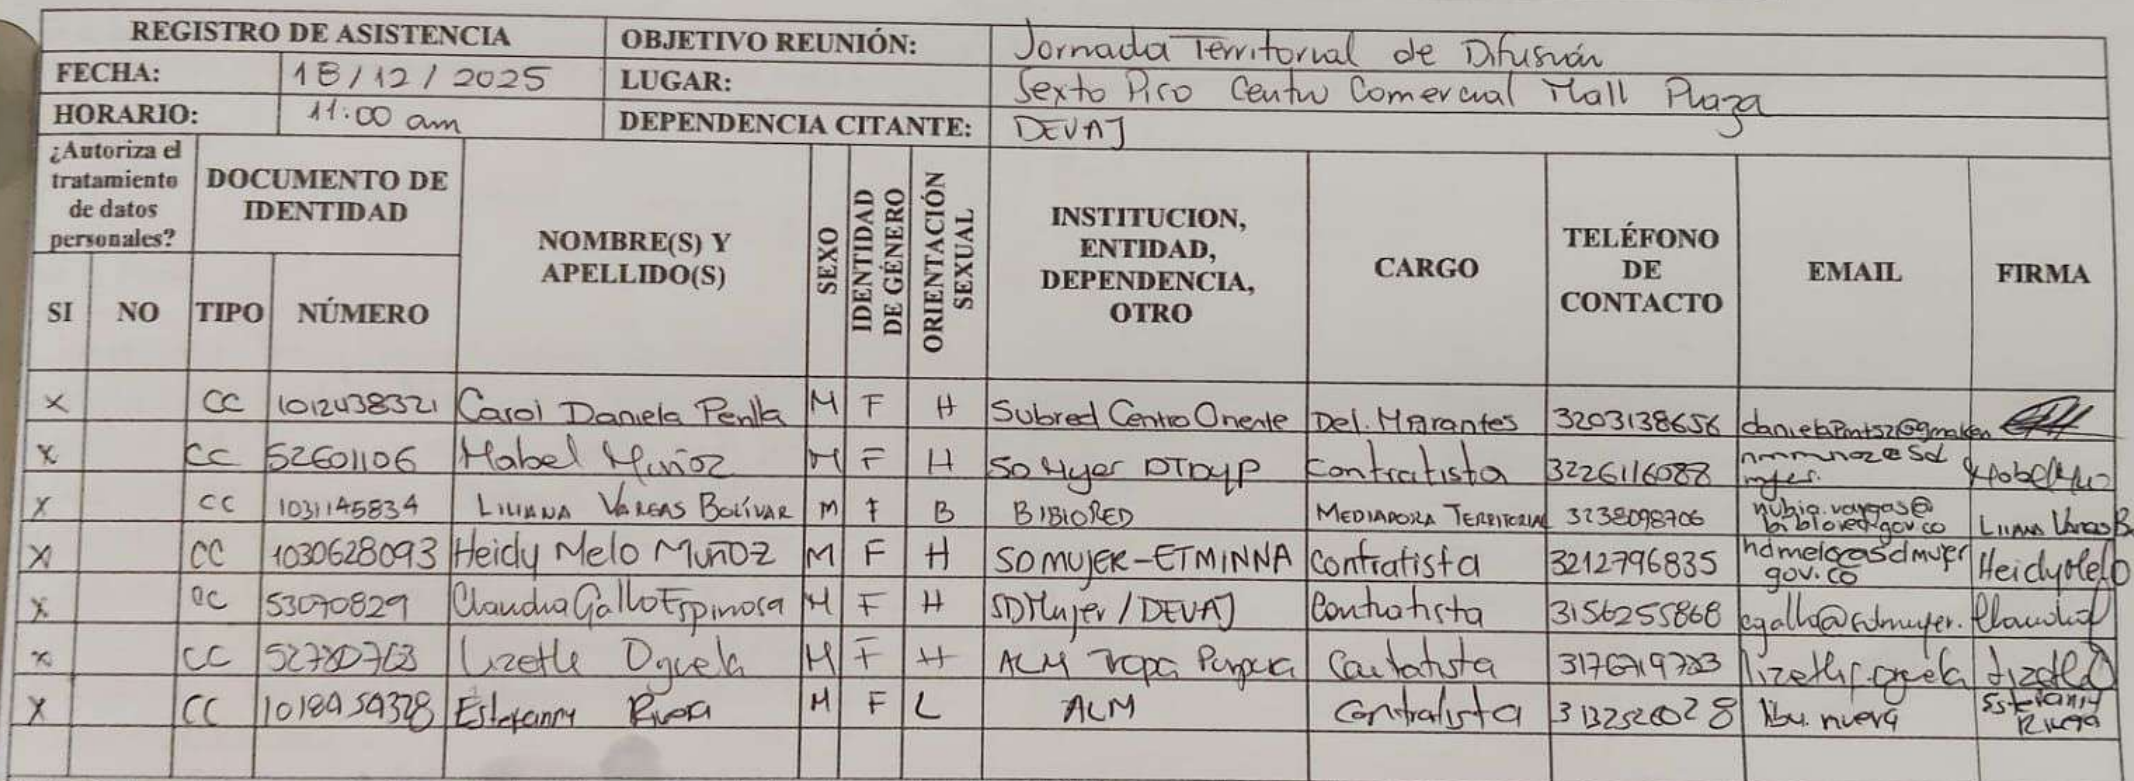 REGISTRO DE ASISTENCIA OBJETIVO REUNIÓN: Jornada Territorial de Difusión
FECHA: 18/12/2025 LUGAR: Sexto Piso Centro Comercial Mall Plaza
HORARIO: 11:00 am DEPENDENCIA CITANTE: DEVAJ
¿Autoriza el tratamiento de datos personales? DOCUMENTO DE IDENTIDAD NOMBRE(S) Y APELLIDO(S) SEXO IDENTIDAD DE GÉNERO ORIENTACIÓN SEXUAL INSTITUCION, ENTIDAD, DEPENDENCIA, OTRO CARGO TELÉFONO DE CONTACTO EMAIL FIRMA
SI NO TIPO NÚMERO
X CC 1012438321 Carol Daniela Penlla M F H Subred Centro Oriente Del. 3203138656
X CC 52601106 Mabel Muñoz M F H SD Mujer DTDyP Contratista 3226116088
X CC 1031145834 LILIANA VARGAS BOLÍVAR M F B BIBIORED MEDIADORA TERRITORIAL 3238098706 nubia.vargas@ biblored.gov.co Liliana Vargas B
X CC 1030628093 Heidy Melo Muñoz M F H SDMUJER-ETMINNA Contratista 3212796835 hdmelo@sdmujer gov.co Heidy Melo
X CC 53070829 Claudia Gallo Espinosa M F H SDMujer / DEVAJ Contratista 3156255868 cgallo@sdmujer. Claudia
X CC Lizeth Oyuela M F H ALM Contratista Lizeth
X CC Estefanny M F L ALM Contratista 3132526028 Estefanny